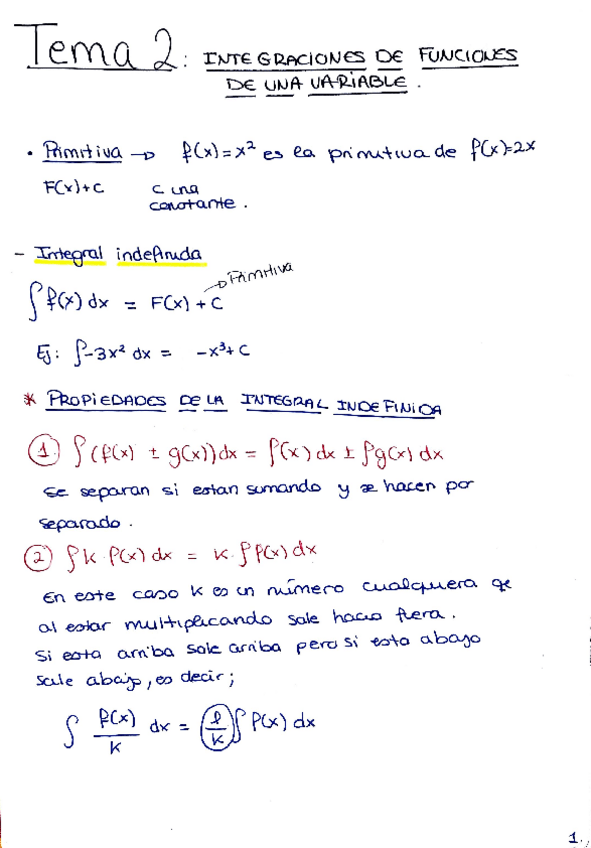 Tema 2: INTEGRACIONES DE FUNCIONES
DE UNA VARIABLE.
• Primitiva → f(x)=x² es la primitiva de f(x)=2x
F(x)+C C una
constante.
- Integral indefinida
→ Primitiva
∫f(x) dx = F(x) + C
Ej: ∫-3x² dx = -x³+C
* PROPIEDADES DE LA INTEGRAL INDEFINIDA
① ∫(f(x) ± g(x))dx = ∫(x) dx ± ∫g(x) dx
se separan si estan sumando y se hacen por
separado.
② ∫K·f(x) dx = K·∫f(x) dx
En este caso K es un número cualquiera qe
al estar multiplicando sale hacia fuera.
Si esta arriba sale arriba pero si esta abajo
sale abajo, es decir;
∫ f(x)/K dx = (1/K)∫ f(x) dx
1.